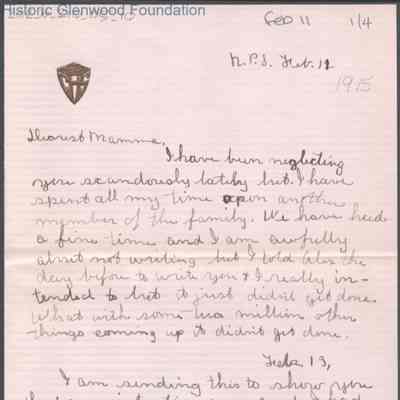 Historic Glenwood Foundation
Feb 11 1/4
N.P.S. Feb. 12
1915
Dearest Mamma,
I have been neglecting
you scandously lately but I have
spent all my time upon another
member of the family. We have had
a fine time and I am awfully
about not writing but I told the
day before to write you & I really in-
tended to but it just didn't get done.
What with some two million other
things coming up it didn't get done.
Feb. 13,
I am sending this to show you